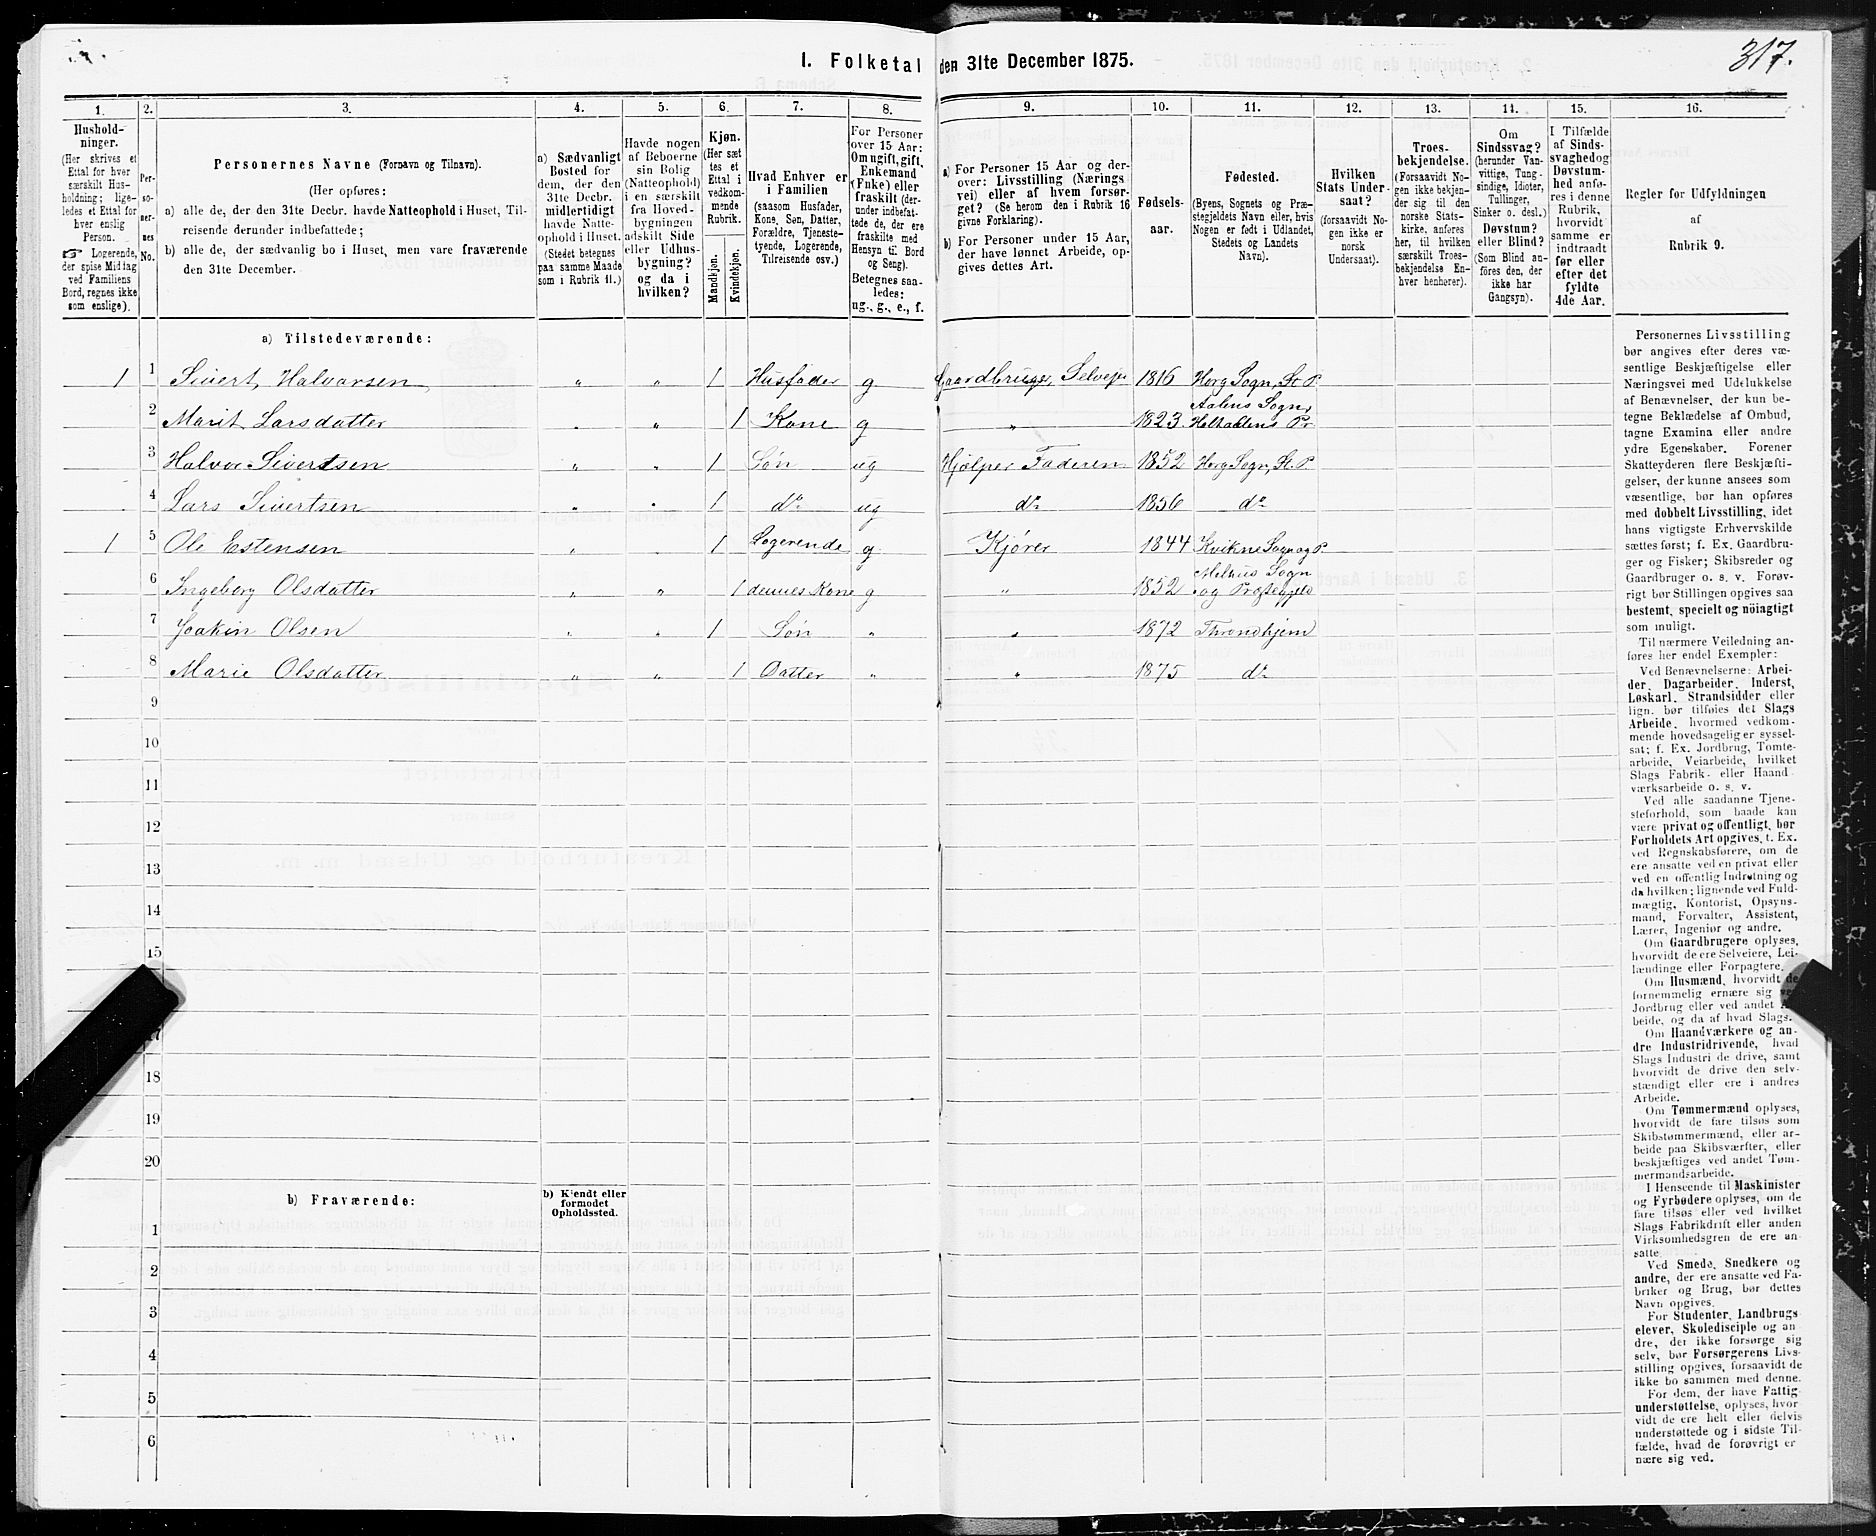 317.
1. Folketal den 31te December 1875.
1. 2. 3. 4. 5. 6. 7. 8. 9. 10. 11. 12. 13. 14. 15. 16.
Hushold-
ninger.
(Her skrives et
Ettal for hver
særskilt Hus-
holdning; lige-
ledes et Ettal for
hver enslig
Person.
☞ Logerende,
der spise Middag
ved Familiens
Bord, regnes ikke
som enslige).
Per-
so-
ner-
nes
No.
Personernes Navne (Fornavn og Tilnavn).
(Her opføres:
a) alle de, der den 31te Decbr. havde Natteophold i Huset, Til-
reisende derunder indbefattede;
b) alle de, der sædvanlig bo i Huset, men vare fraværende
den 31te December.
a) Sædvanligt
Bosted for
dem, der den
31te Decbr.
midlertidigt
havde Natte-
ophold i Huset.
(Stedet betegnes
paa samme Maade
som i Rubrik 11.)
Havde nogen
af Beboerne
sin Bolig
(Natteophold)
i en særskilt
fra Hoved-
bygningen
adskilt Side
eller Udhus-
bygning?
og da i
hvilken?
Kjøn.
(Her sæt
tes et
Ettal i
vedkom-
mende
Rubrik.
Mandkjøn.
Kvindekjøn.
Hvad Enhver er
i Familien
(saasom Husfader,
Kone, Søn, Datter,
Forældre, Tjeneste-
tyende, Logerende,
Tilreisende osv.)
For Personer
over 15 Aar:
Om ugift, gift,
Enkemand
(Enke) eller
fraskilt (der-
under indbefat-
tede de, der ere
fraskilte med
Hensyn til Bord
og Seng).
Betegnes saa-
ledes:
ug., g., e., f.
a) For Personer 15 Aar og der-
over: Livsstilling (Nærings
vei) eller af hvem forsør-
get? (Se herom den i Rubrik 16
givne Forklaring).
b) For Personer under 15 Aar,
der have lønnet Arbeide, op-
gives dettes Art.
Fødsels-
aar.
Fødested.
(Byens, Sognets og Præ-
stegjeldets Navn eller, hvis
Nogen er født i Udlandet,
Stedets og Landets
Navn).
Hvilken
Stats Under-
saat?
(forsaavidt No-
gen ikke er
norsk
Undersaat).
Troes-
bekjendelse.
(Forsaavidt No-
gen ikke bekjen-
der sig til den
norske Stats-
kirke, anføres
her, til hvilken
særskilt Troes-
bekjendelse En-
hver henhører).
Om
Sindssvag?
(herunder Van-
vittige, Tung-
sindige, Idioter,
Tullinger,
Sinker o. desl.)
Døvstum?
eller Blind?
(Som Blind an-
føres den, der
ikke har
Gangsyn).
I Tilfælde
af Sinds-
svaghed og
Døvstum-
hed anfø-
res i denne
Rubrik,
hvorvidt
samme er
indtraadt
før eller
efter det
fyldte
4de Aar.
Regler for Udfyldningen
af
Rubrik 9.
a) Tilstedeværende:
1 1 Sivert Halvorsen „ „ 1 Husfader g Gaardbruger, Selveje 1816 Horg Sogn, St. P.
2 Marit Larsdatter „ „ 1 Kone g „ 1823 Aalens Sogn, Holtaalens Pr
3 Halvor Sivertsen „ „ 1 Søn ug Hjælper Faderen 1852 Horg Sogn, St. P
4 Lars Sivertsen „ „ 1 do ug do 1856 do
1 5 Ole Estensen „ „ 1 Logerende g Kjører 1844 Kvikne Sogn og P.
6 Ingeborg Olsdatter „ „ 1 dennes Kone g „ 1852 Melhus Sogn og Præstegjeld
7 Joakin Olsen „ „ 1 Søn „ „ 1872 Throndhjem
8 Marie Olsdatter „ „ 1 Datter „ „ 1875 do
9
10
11
12
13
14
15
17
18
19
20
b) Fraværende:
b) Kjendt eller
formodet
Opholdssted.
1
2
3
4
5
6
Personernes Livsstilling
bør angives efter deres væ-
sentlige Beskjæftigelse eller
Næringsvei med Udelukkelse
af Benævnelser, der kun be-
tegne Beklædelse af Ombud,
tagne Examina eller andre
ydre Egenskaber. Forener
Skatteyderen flere Beskjæfti-
gelser, der kunne ansees som
væsentlige, bør han opføres
med dobbelt Livsstilling, idet
hans vigtigste Erhvervskilde
sættes først; f. Ex. Gaardbru-
ger og Fisker; Skibsreder og
Gaardbruger o. s. v. Forøv-
rigt bør Stillingen opgives saa
bestemt, specielt og nöiagtigt
som muligt.
Til nærmere Veiledning an-
føres her endel Exempler:
Ved Benævnelserne: Arbei-
der, Dagarbeider, Inderst,
Løskarl, Strandsidder eller
lign. bør tilføies det Slags
Arbeide, hvormed vedkom-
mende hovedsagelig er syssel-
sat; f. Ex. Jordbrug, Tomte-
arbeide, Veiarbeide, hvilket
Slags Fabrik- eller Haand
værksarbeide o. s. v.
Ved alle saadanne Tjene-
steforhold, som baade kan
være privat og offentligt, bør
Forholdets Art opgives, t. Ex.
ved Regnskabsførere, om de
ere ansatte ved en privat eller
ved en offentlig Indretning og
da hvilken; lignende ved Fuld-
mægtig, Kontorist, Opsyns-
mand, Forvalter, Assistent,
Lærer, Ingeniør og andre.
Om Gaardbrugere oplyses,
hvorvidt de ere Selveiere, Lei-
lændinge eller Forpagtere.
Om Husmænd, hvorvidt de
fornemmelig ernære sig ved
Jordbrug eller ved andet Ar-
beide, og da af hvad Slags.
Om Haandværkere og an-
dre Industridrivende, hvad
Slags Industri de drive, samt
hvorvidt de drive den selv-
stændigt eller ere i andres
Arbeide.
Om Tømmermænd oplyses,
hvorvidt de fare tilsøs som
Skibstømmermænd, eller ar-
beide paa Skibsværfter, eller
beskjæftiges ved andet Tøm-
mermandsarbeide.
I Henseende til Maskinister
og Fyrbødere oplyses, om de
fare tilsøs eller ved hvilket
Slags Fabrikdrift eller anden
Virksomhedsgren de ere an-
satte.
Ved Smede, Snedkere og
andre, der ere ansatte ved Fa-
briker og Brug, bør dettes
Navn opgives.
For Studenter, Landbrugs-
elever, Skoledisciple og an-
dre, der ikke forsørge sig
selv, bør Forsørgerens Livs-
stilling opgives, forsaavidt de
ikke bo sammen med denne.
For dem, der have Fattig-
understøttelse, oplyses, hvor
vidt de ere helt eller delvis
understøttede og i sidste Til-
fælde, hvad de forøvrigt er
nære sig ved.